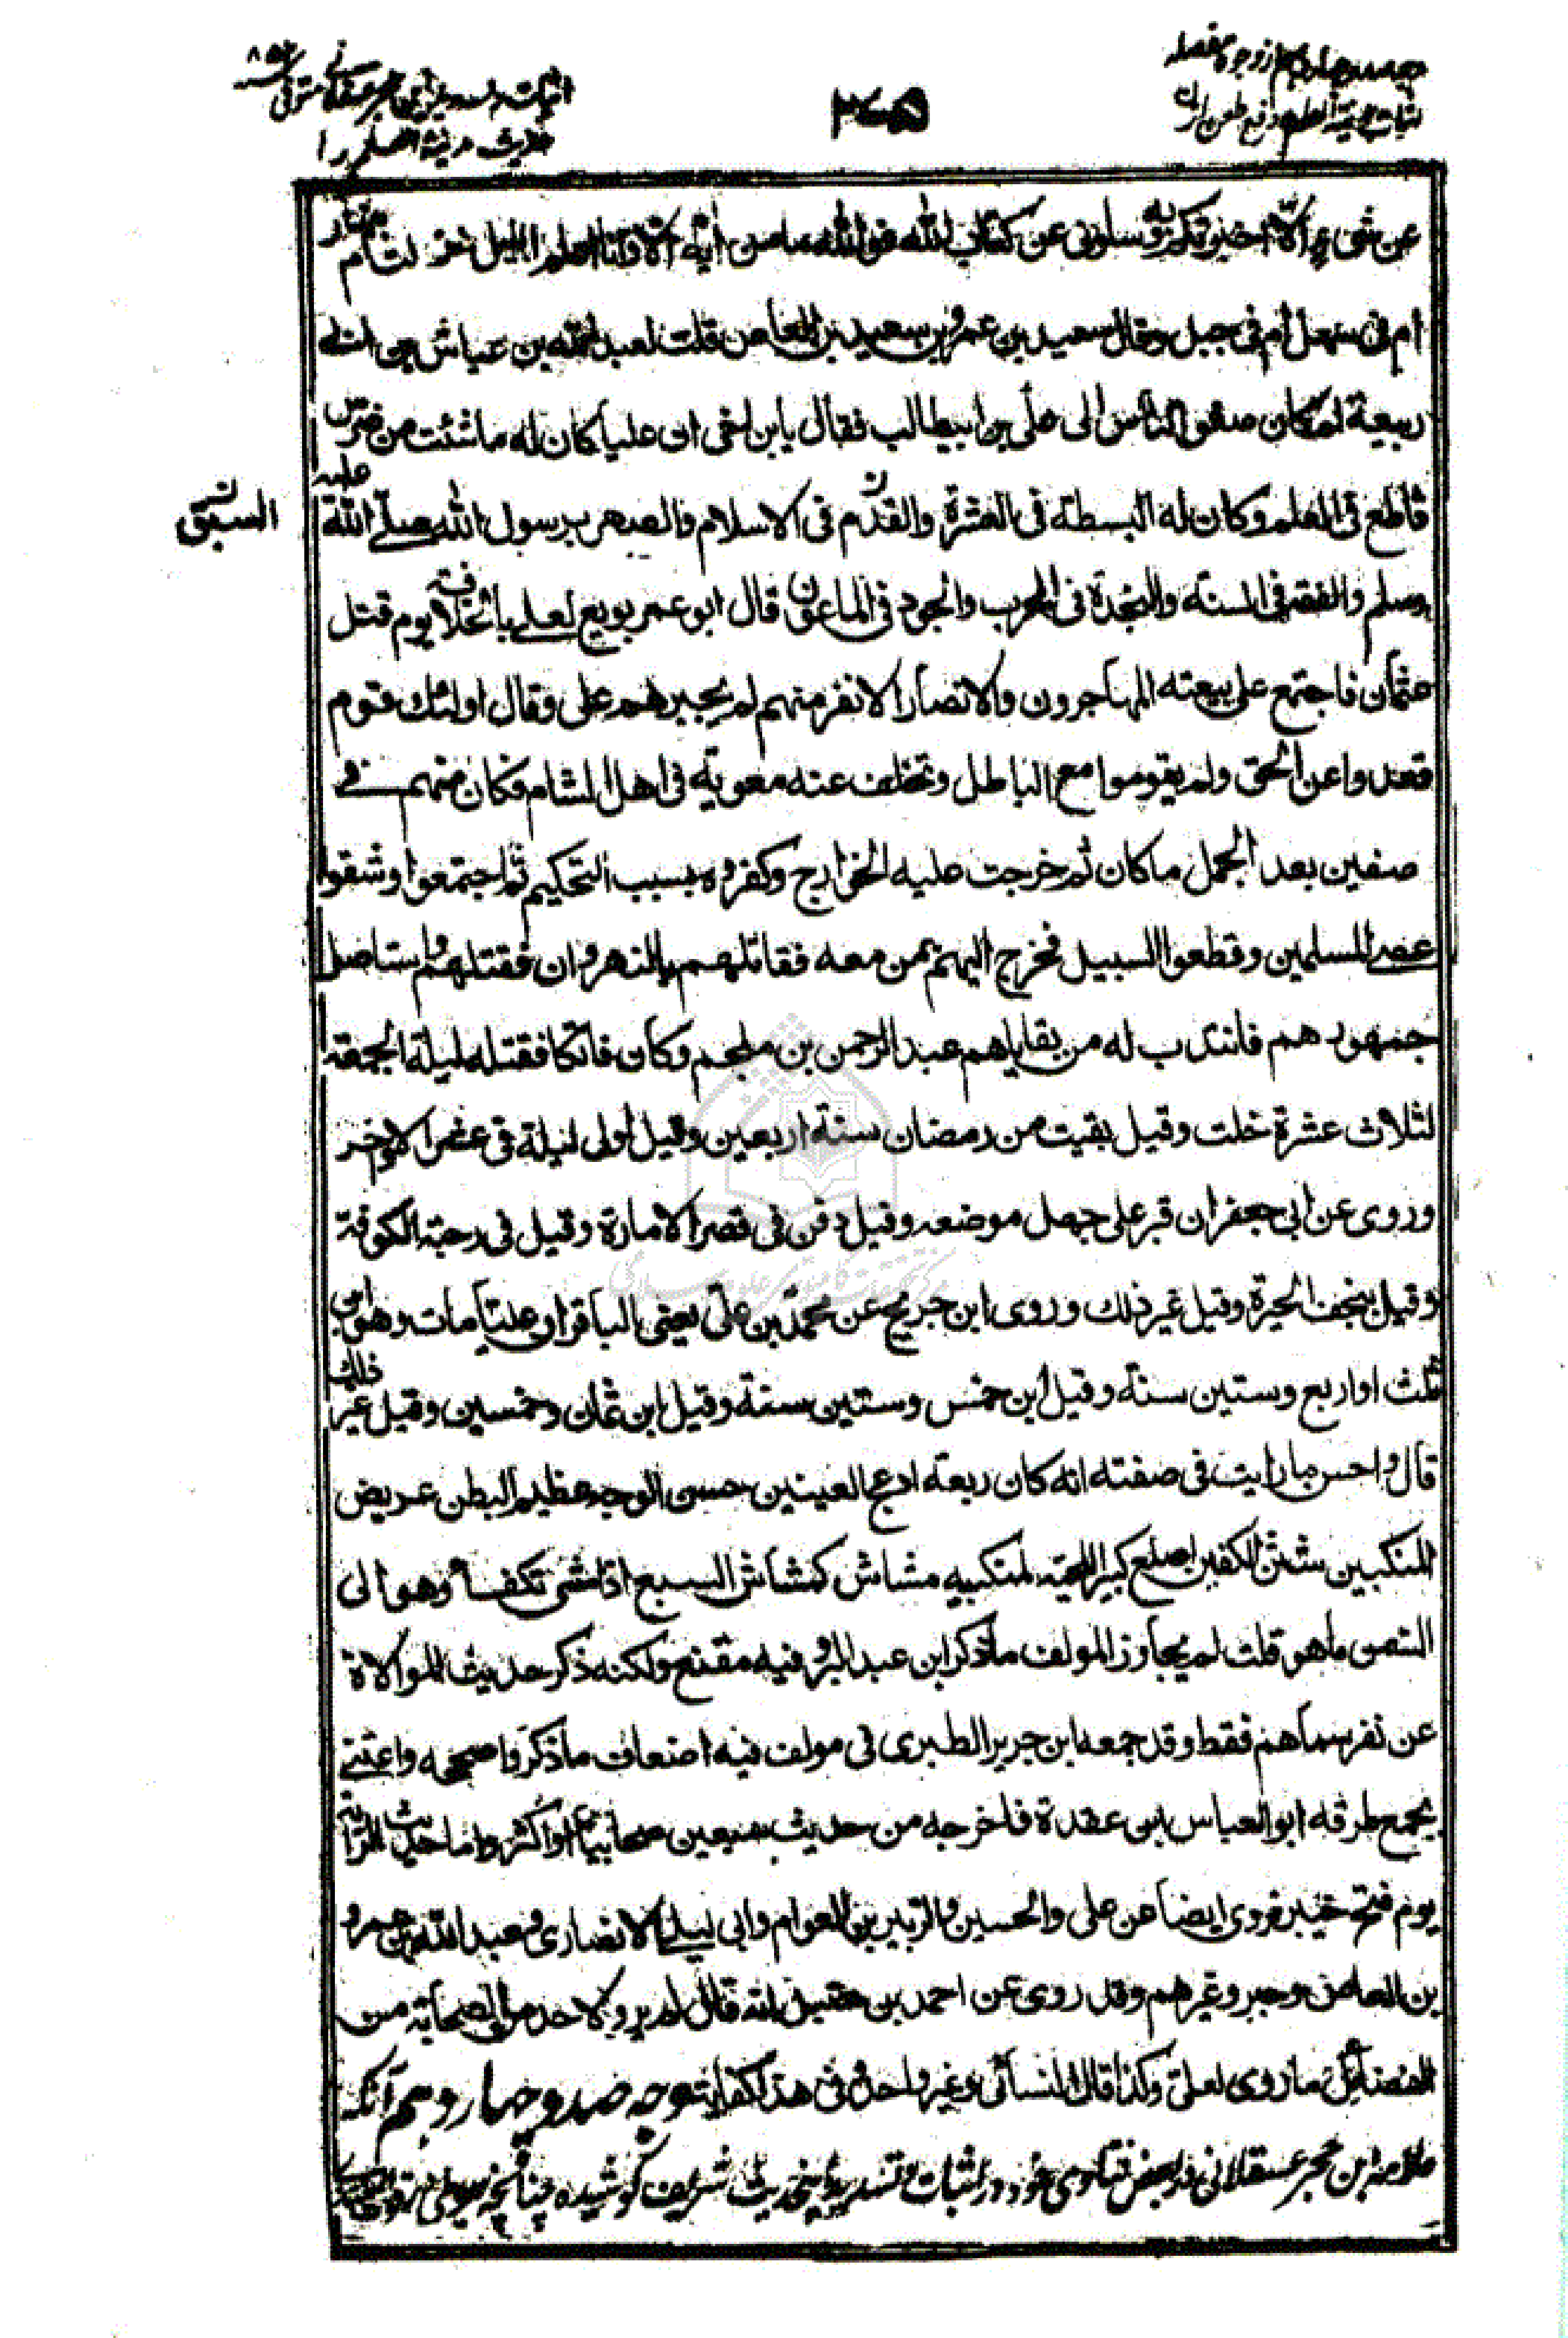 ۲۷۵
عن شیء الا اخبرتکم به وسلونی عن کتاب الله فوالله ما من آیة الا وانا اعلم ابلیل نزلت ام بنهار
ام فی سهل ام فی جبل وقال سعید بن عمرو بن سعید بن العاص قلت لعبد الله بن عیاش بن ابی
ربیعة لم کان صغو الناس الی علی بن ابیطالب فقال یا بن اخی ان علیا کان له ما شئت من ضرس
قاطع فی العلم وکان له البسطة فی العشرة والقدم فی الاسلام والصهر برسول الله صلی الله علیه
السبق
وسلم والفقه فی السنة والنجدة فی الحرب والجود فی الماعون قال ابو عمر بویع لعلی بالخلافة یوم قتل
عثمان فاجتمع علی بیعته المهاجرون والانصار الا نفر منهم لم یجبرهم علی وقال اولئک قوم
قعدوا عن الحق ولم یقوموا مع الباطل وتخلف عنه معویة فی اهل الشام فکان منهم فی
صفین بعد الجمل ما کان ثم خرجت علیه الخوارج وکفروه بسبب التحکیم ثم اجتمعوا وشقوا
عصی المسلمین وقطعوا السبیل فخرج الیهم بمن معه فقاتلهم بالنهروان فقتلهم واستاصل
جمهورهم فانتدب له من بقایاهم عبد الرحمن بن ملجم وکان فاتکا فقتله لیلة الجمعة
لثلاث عشرة خلت وقیل بقیت من رمضان سنة اربعین وقیل اولی لیلة فی عشر الاواخر
وروی عن ابی جعفر ان قبر علی جهل موضعه وقیل دفن فی قصر الامارة وقیل فی رحبة الکوفة
وقیل بنجف الحیرة وقیل غیر ذلک وروی ابن جریج عن محمد بن علی یعنی الباقر ان علیا مات وهو ابن
ثلث او اربع وستین سنة وقیل ابن خمس وستین سنة وقیل ابن ثمان وخمسین وقیل غیر ذلک
قال واحسن ما رایت فی صفته انه کان ربعة ادعج العینین حسن الوجه عظیم البطن عریض
المنکبین شثن الکفین اصلع کبیر اللحیة لمنکبیه مشاش کمشاش السبع اذا مشی تکفأ وهو الی
السمن ما هو قلت لم یجاوز المولف ما ذکر ابن عبد البر وفیه مقنع ولکنه ذکر حدیث الموالاة
عن نفر سماهم فقط وقد جمعه ابن جریر الطبری فی مولف فیه اضعاف ما ذکر وصححه واعتنی
بجمع طرقه ابو العباس ابن عقدة فاخرجه من حدیث سبعین صحابیا او اکثر واما حدیث الرایة
یوم فتح خیبر فروی ایضا عن علی والحسین والزبیر بن العوام وابی لیلی الانصاری وعبد الله بن عمرو
بن العاص وجابر وغیرهم وقد روی عن احمد بن حنبل انه قال لم یرو لاحد من الصحابة من
الفضائل ما روی لعلی وکذا قال النسائی وغیر واحد وفی هذا کفایة وجه صد و چهاردهم آنکه
علامه ابن حجر عسقلانی در بعض فتاوی خود در اثبات و تسدید این حدیث شریف کوشیده چنانچه سیوطی در